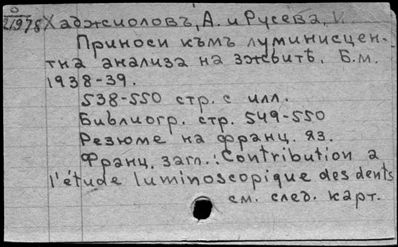 О
21978 Хаджиоловъ, А. и Русева, И.
Приноси къмъ луминисцен-
тна анализа на зѫбитѣ. Б.м.
1938-39.
538-550 стр. с илл.
Библиогр. стр. 549-550
Резюме на франц. яз.
Франц. загл.: Contribution a
l'étude luminoscopique des dents
см. след. карт.